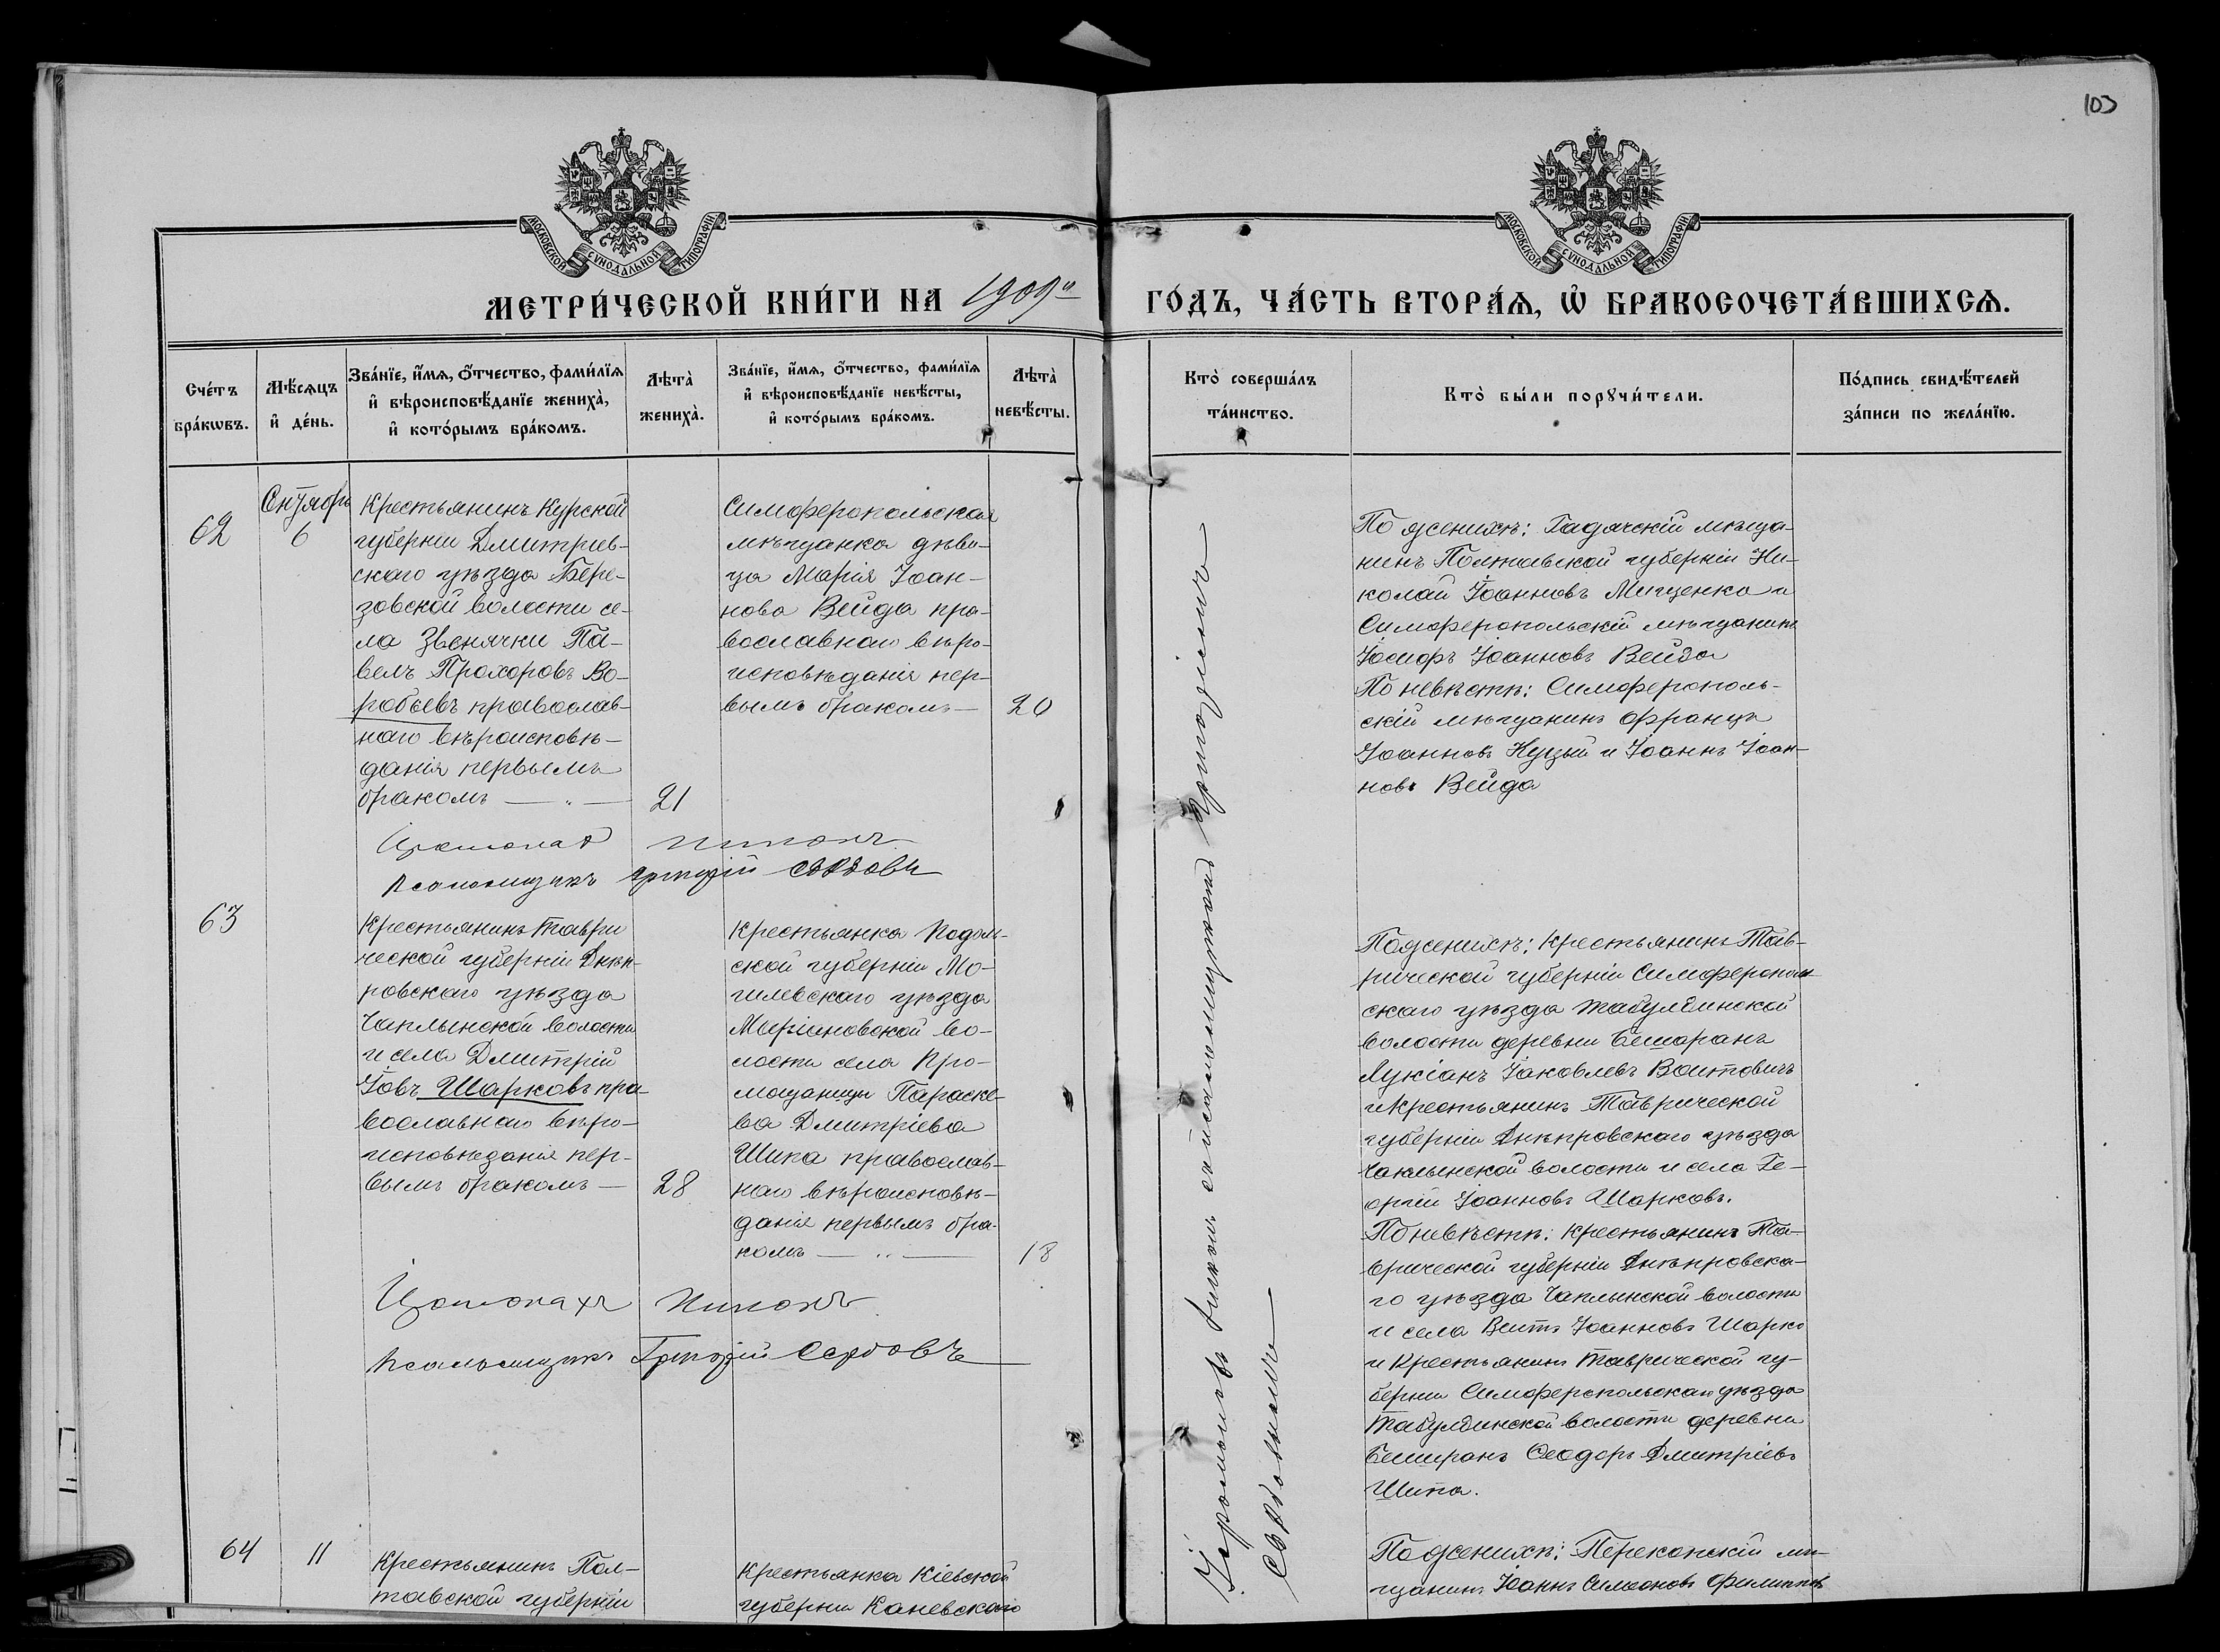 103
МОСКОВСКОЙ СУНОДАЛЬНОЙ ТИПОГРАФІИ
МОСКОВСКОЙ СУНОДАЛЬНОЙ ТИПОГРАФІИ
МЕТРИ́ЧЕСКОЙ КНИ́ГИ НА 1909й ГО́ДЪ, ЧА́СТЬ ВТОРА́Ѧ, Ѽ БРАКОСОЧЕТА́ВШИХСѦ.
Сче́тъ
бра́кѡвъ.
Мѣ́сѧцъ
и҆ де́нь.
Зва́нїе, и҆́мѧ, ѻ҆́тчество, фами́лїѧ
и҆ вѣроисповѣ́данїе жениха̀,
и҆ кото́рымъ бра́комъ.
Лѣта̀
жениха̀.
Зва́нїе, и҆́мѧ, ѻ҆́тчество, фами́лїѧ
и҆ вѣроисповѣ́данїе невѣ́сты,
и҆ кото́рымъ бра́комъ.
Лѣта̀
невѣ́сты.
Кто̀ соверша́лъ
та́инство.
Кто̀ бы́ли порꙋчи́тели.
По́дпись свидѣ́телей
за́писи по жела́нїю.
62
Октябрь
6
Крестьянинъ Курской
губерніи Дмитріев-
скаго уѣзда Бере-
зовской волости се-
ла Звенячки Па-
велъ Прохоровъ Во-
робьевъ православ-
наго вѣроисповѣ-
данія первымъ
бракомъ —
21
Симферопольская
мѣщанка дѣви-
ца Марія Іоан-
нова Вейда пра-
вославнаго вѣро-
исповѣданія пер-
вымъ бракомъ —
20
По женихѣ: Гадячскій мѣща-
нинъ Полтавской губерніи Ни-
колай Іоанновъ Мищенко и
Симферопольскій мѣщанинъ
Іосифъ Іоанновъ Вейда
По невѣстѣ: Симферополь-
скій мѣщанинъ Францъ
Іоанновъ и Іоаннъ Іоан-
новъ Вейда
Іеромонахъ Никонъ
Псаломщикъ Григорій Сербовъ
63
Крестьянинъ Таври
ческой губерніи Днѣп-
ровскаго уѣзда
Чаплынской волости
и села Дмитрій
Іовъ Шарковъ пра-
вославнаго вѣро-
исповѣданія пер-
вымъ бракомъ —
28
Крестьянка Подоль-
ской губерніи Мо-
гилевскаго уѣзда
во-
лости села
Параске-
ва Дмитріева
Шипа православ-
наго вѣроисповѣ-
данія первымъ бра-
комъ —
18
По женихѣ: Крестьянинъ Тав-
рической губерніи Симферополь
скаго уѣзда Табулдинской
волости деревни Бешаранъ
Лукіанъ Іаковлевъ Воитовичъ
и крестьянинъ Таврической
губерніи Днѣпровскаго уѣзда
Чаплынской волости и села Ге-
оргій Іоанновъ Шарковъ.
По невѣстѣ: крестьянинъ Та-
врической губерніи Днѣпровска-
го уѣзда Чаплынской волости
и села Іоанновъ Шарко
и крестьянинъ Таврической гу-
берніи Симферопольскаго уѣзда
Табулдинской волости деревни
Бешаранъ Ѳеодоръ Дмитріевъ
Шипа.
Іеромонахъ Никонъ
Псаломщикъ Григорій Сербовъ
Іеромонахъ Никонъ съ псаломщикомъ Григоріемъ
Сербовымъ
64
11
Крестьянинъ Пол-
тавской губерніи
Крестьянка Кіевской
губерніи Каневскаго
По женихѣ: Перекопскій мѣ-
щанинъ Іоаннъ Симеоновъ Филипповъ